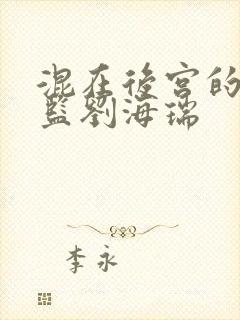 混在後宮的
藍劉海瑞
李永